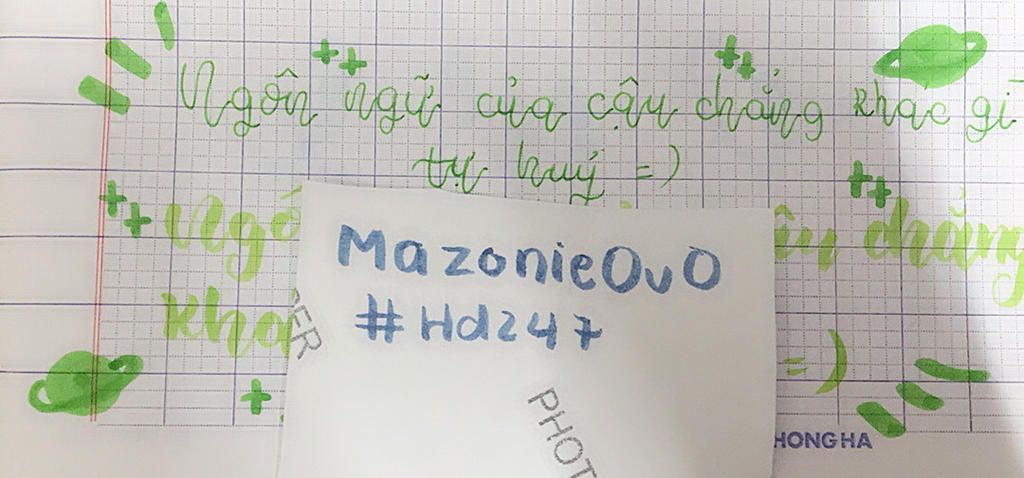 Ngôn ngữ của cậu chẳng khac gì
tự huỷ =)
Ngô
âu chẳng
kha
=)
MazonieOvO
#Hdz47
ER
PHOT
HONG HA